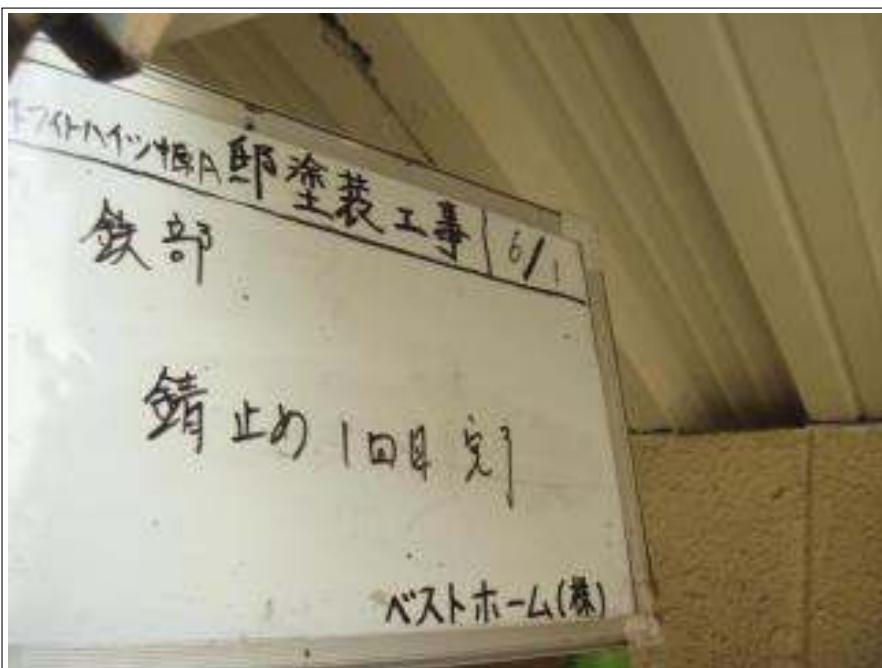 ホワイトハイツ塬A邸塗装工事 6/1
鉄部
錆止め 1回目 完了
ベストホーム(株)